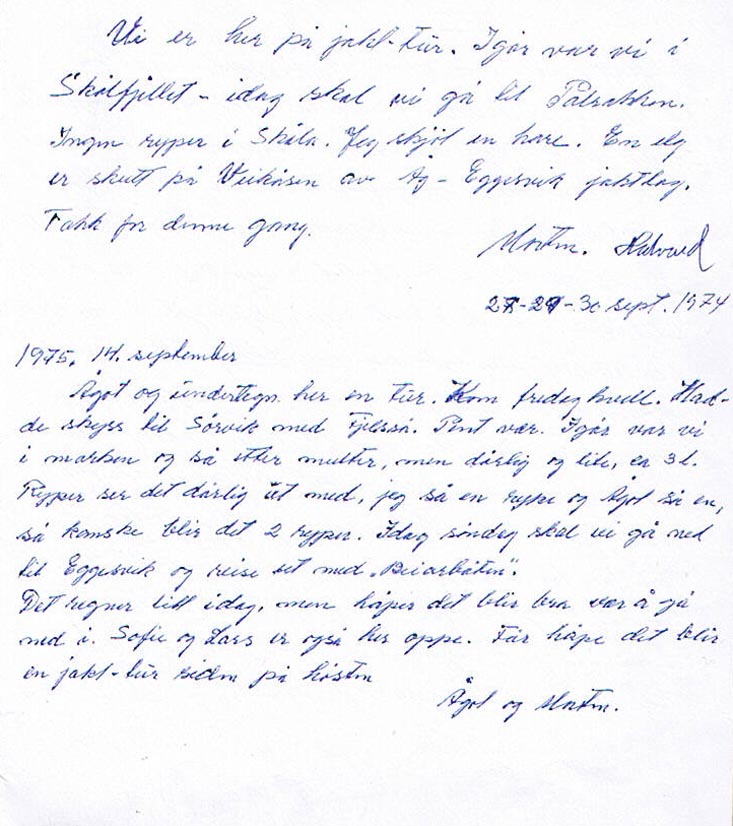 Vi er her på jakt-tur. Igår var vi i
Skålfjellet - idag skal vi gå til
Ingen ryper i Skåla. Jeg skjøt en hare. En elg
er skutt på Veikåsen av Åg - Eggesvik jaktlag.
Takk for denne gang.
Morten. Halvard
29-30 sept. 1974
1975, 14. september
Ågot og undertegn. her en tur. Kom fredag kveld. Had-
de skyss til Sørvik med Fjelsså. Pent vær. Igår var vi
i marken og så etter multer, men dårlig og lite, ca 3 l.
Ryper ser det dårlig ut med, jeg så en rype og Ågot så en,
så kanske blir det 2 ryper. Idag søndag skal vi gå ned
til Eggesvik og reise ut med „Beiarbåten".
Det regner litt idag, men håper det blir bra vær å gå
ned i. Sofie og Lars er også her oppe. Får håpe det blir
en jakt-tur siden på høsten
Ågot og Morten.